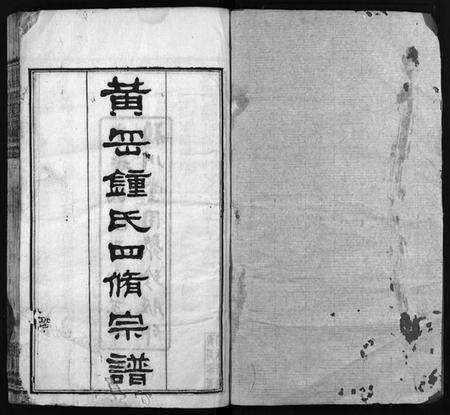 黃岡鍾氏四脩宗譜